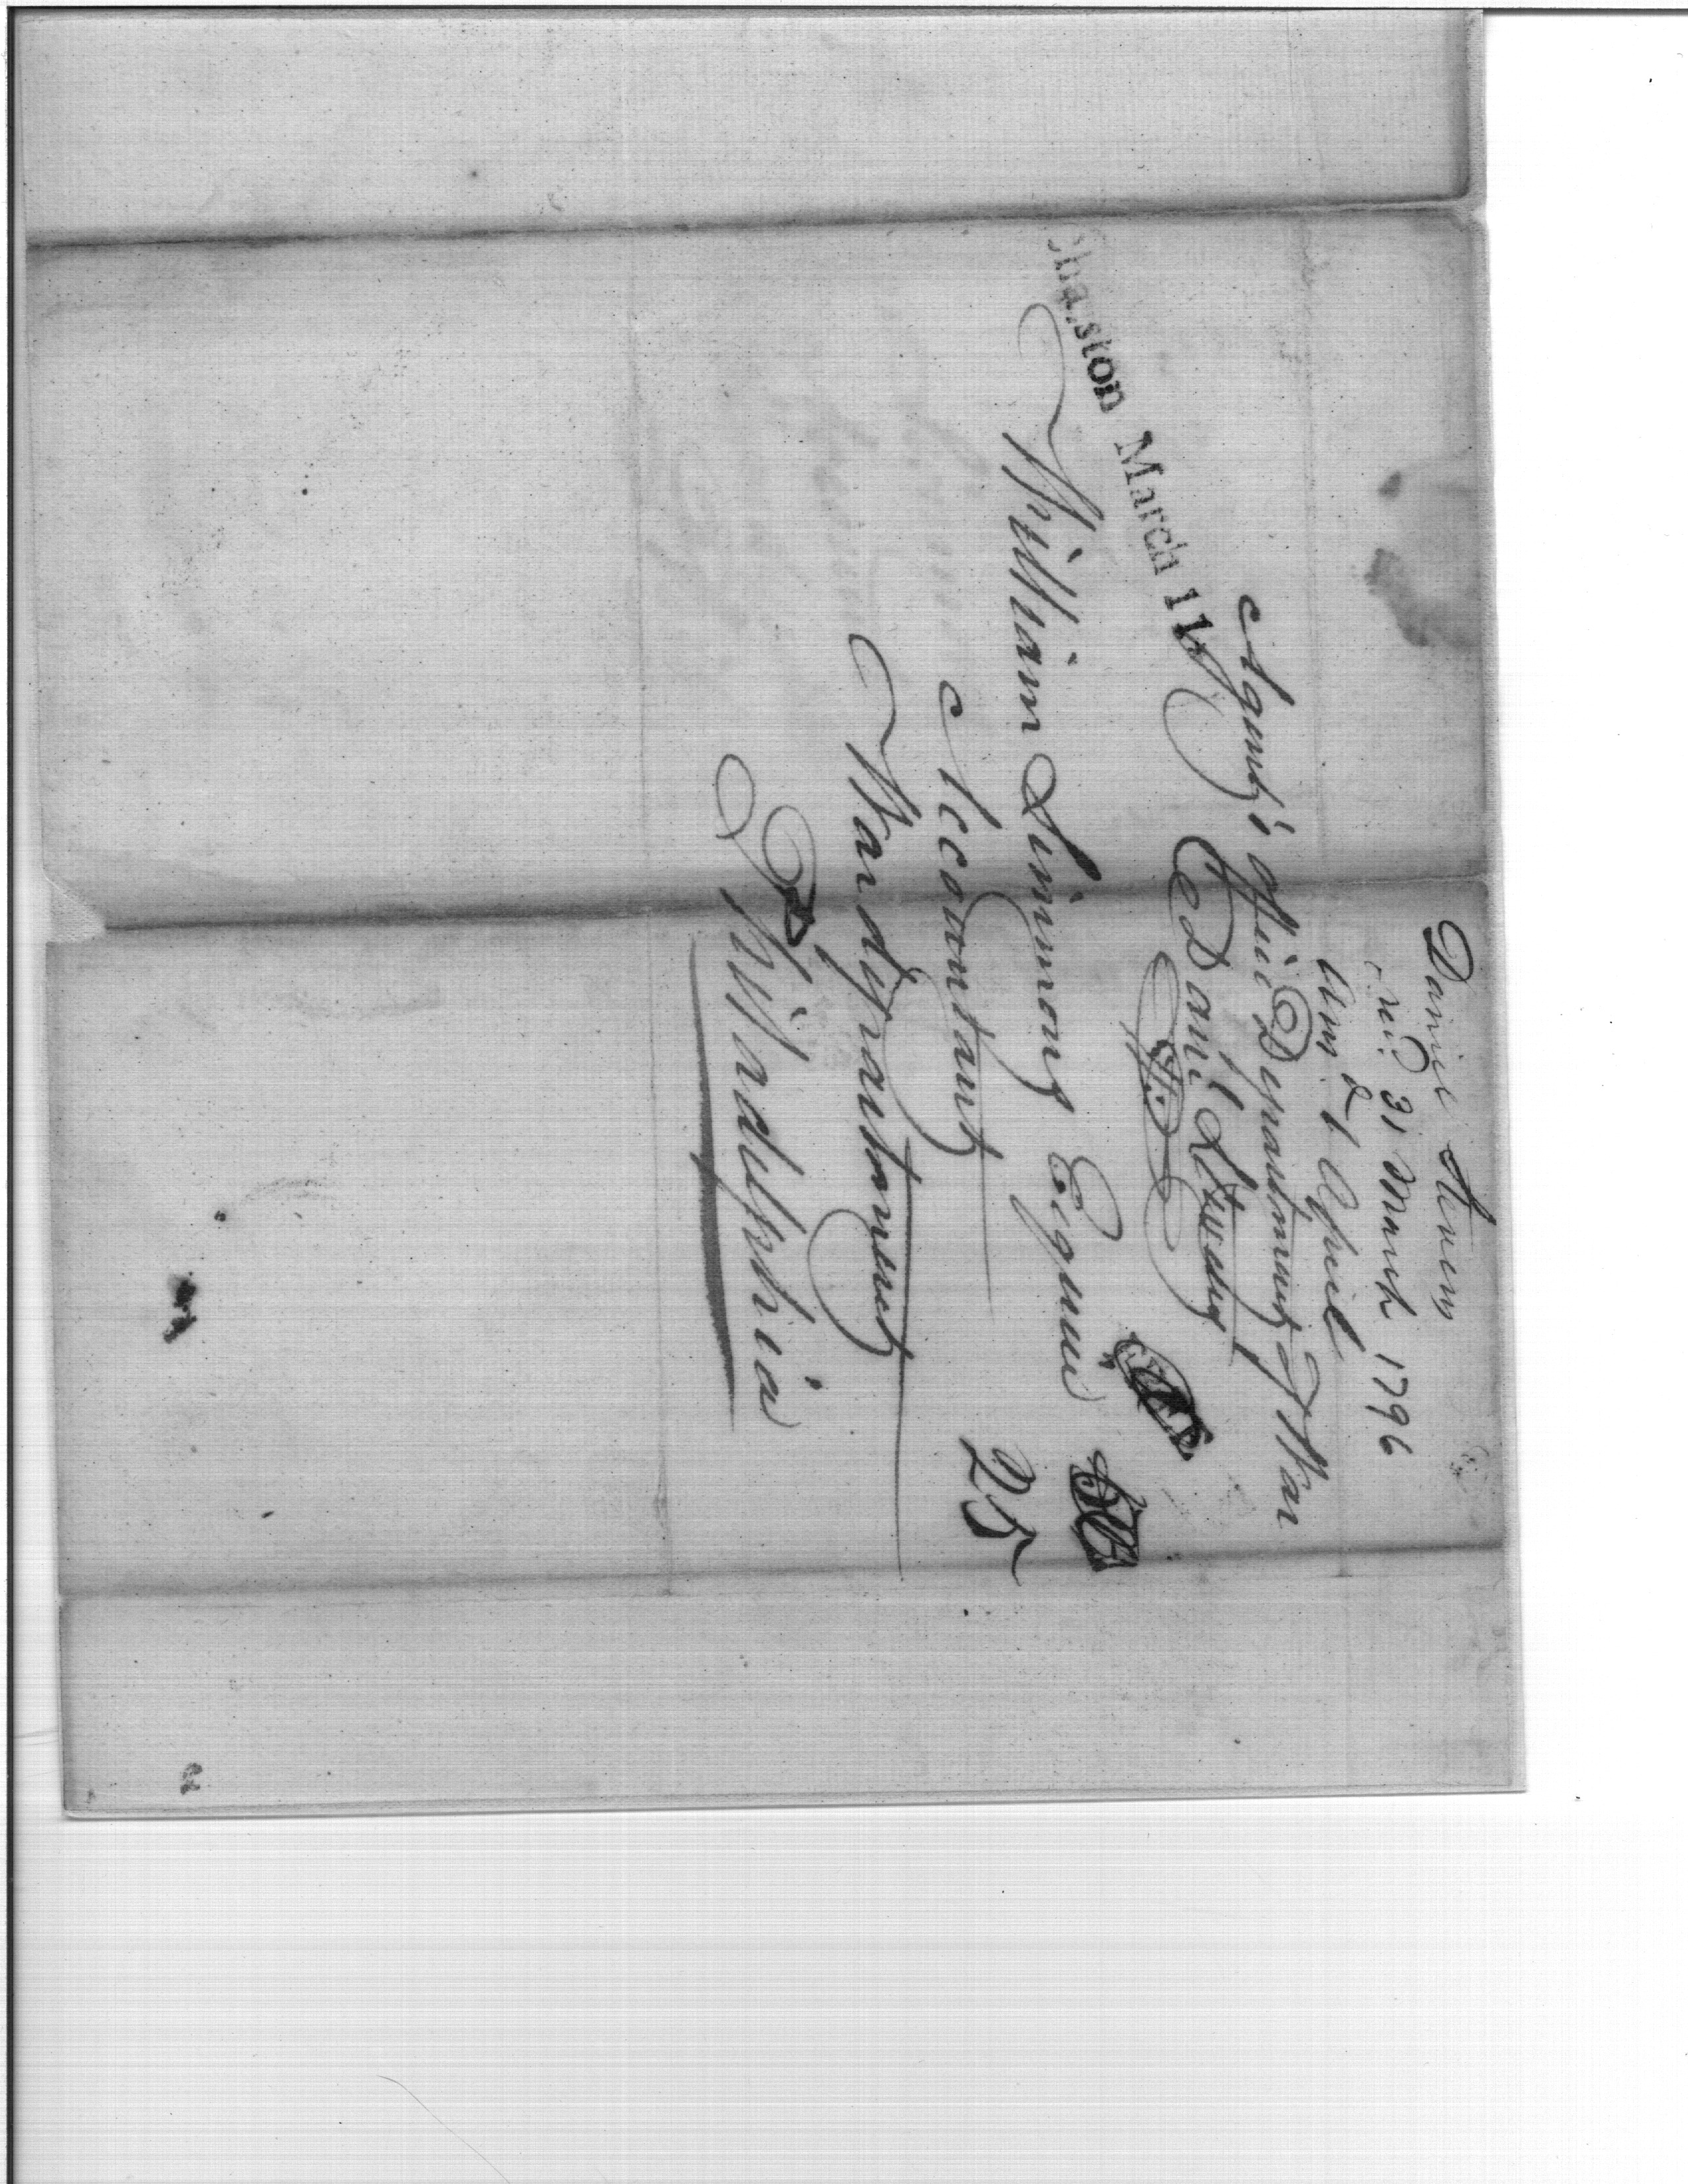 Daniel Stevens
31 March 1796
Ansd 1 April
Agents office Department of War
Danl. Stevens
Cha.ston March 11
William Simmons Esquire
Accountant
War department
Philadelphia
25